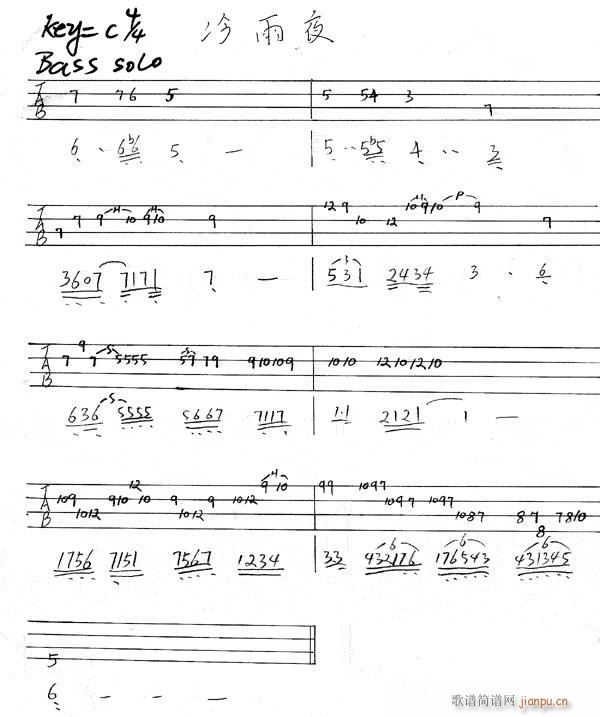 Key=C 4/4 冷雨夜
Bass solo
TAB 7 7 6 5 5 5 4 3 7
6 · 6 b6 5 — 5 · · 5 b5 4 · · 3
TAB 7 7 9 H 10 9 H 10 9 12 9 10 12 10 H 9 10 P 9 7
3607 7171 7 — 3 531 2434 3 · 6
TAB 7 9 7 S 5555 5 S 7 7 9 9 10 10 9 10 10 12 10 12 10
636 S 5555 5667 7117 1·1 2121 1 —
TAB 10 9 10 12 9 10 12 10 9 10 12 9 10 12 9 H 10 9 9 10 9 7 10 9 7 10 9 7 10 8 7 8 7 8 7 8 10
1756 7151 7567 1234 33 6 432176 6 176543 6 431345
5
6 — — —
歌谱简谱网 jianpu.cn